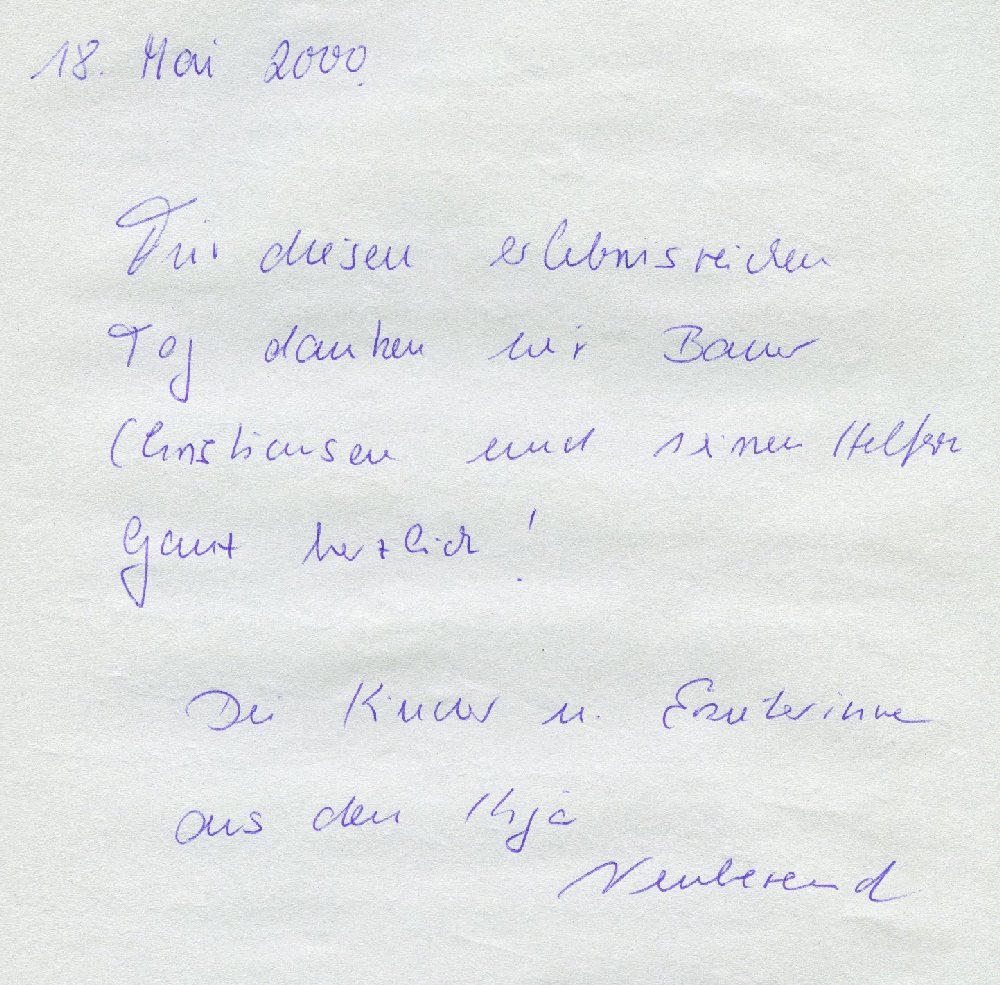 18. Mai 2000.
Für diesen erlebnisreichen
Tag danken wir Bauer
Christiansen und seinen Helfern
Ganz herzlich!
Die Kinder u. Erzieherinnen
aus dem Kiga
Neuberend